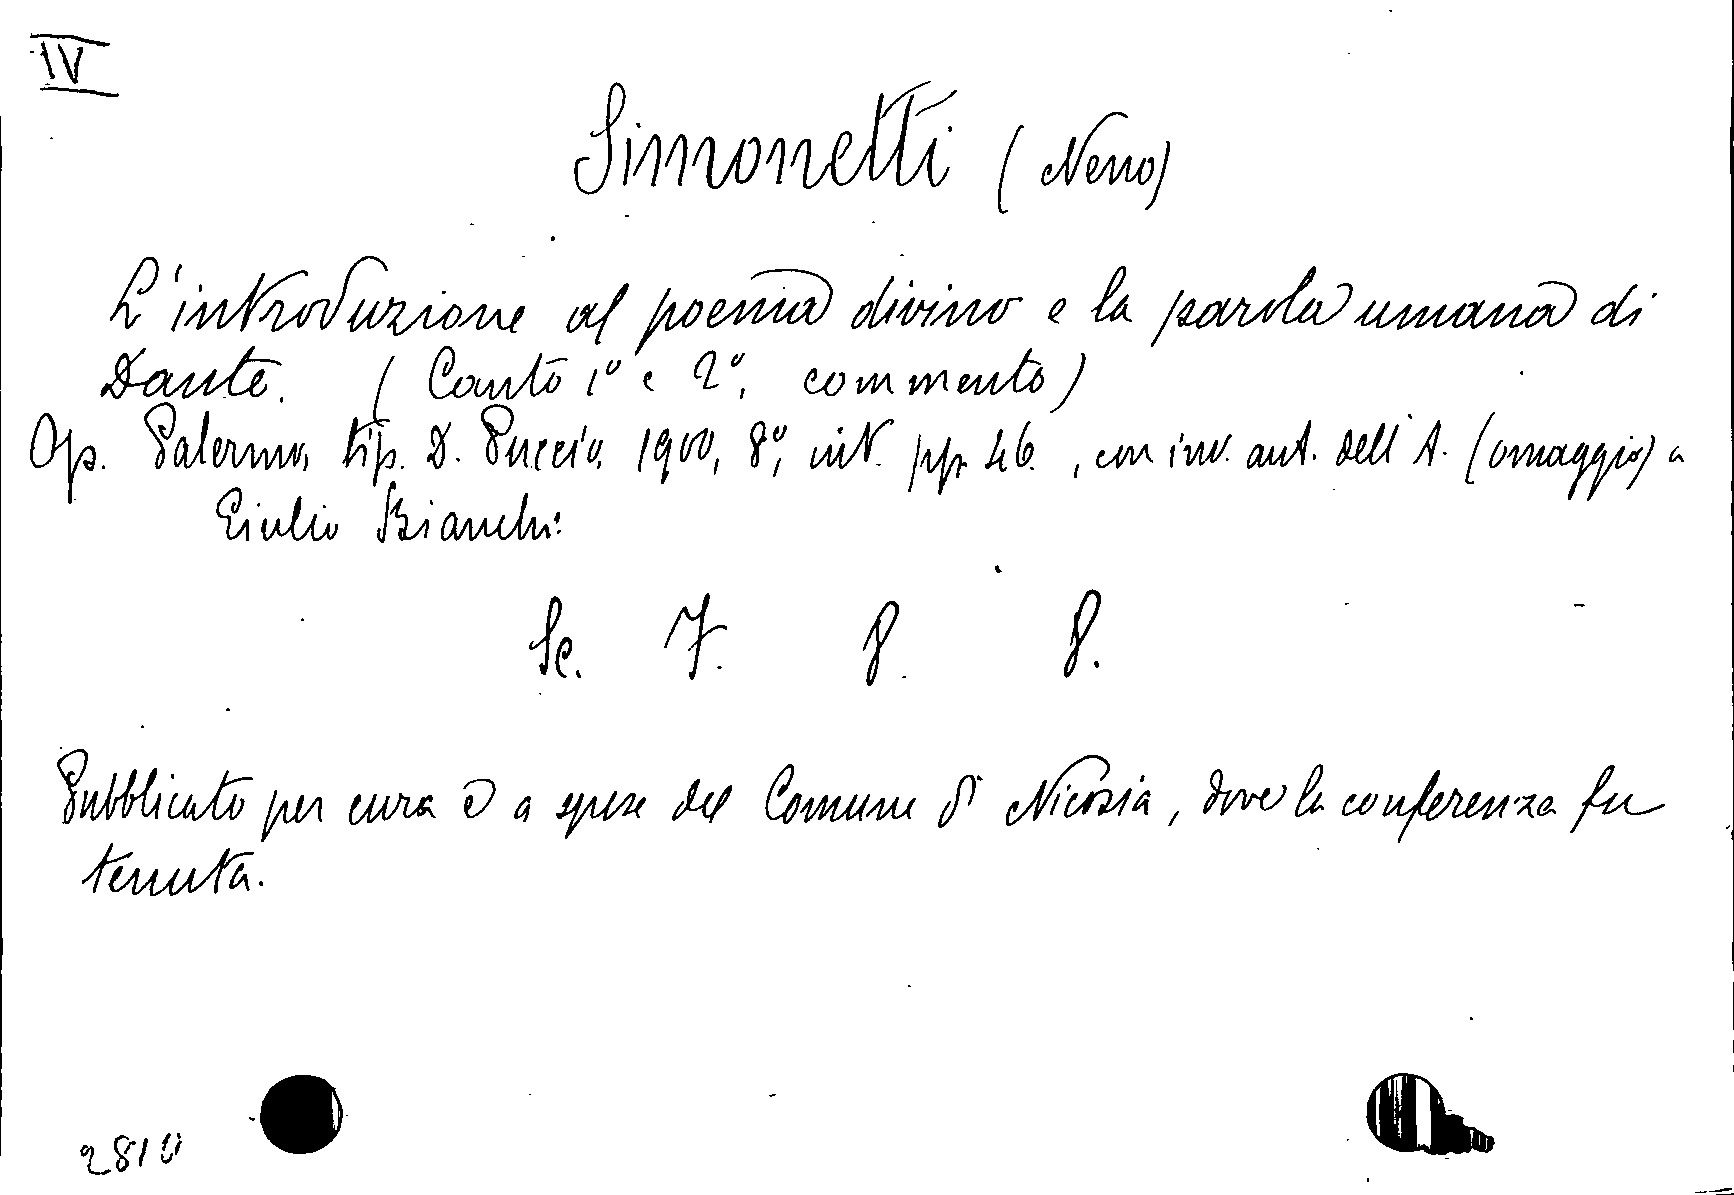 IV
Simonetti (Neno)
L'introduzione al poema divino e la parola umana di
Dante. (Canto 1º e 2º, commento)
Op. Palermo, tip. D. Puccio, 1900, 8º, int. pp. 46., con inv. aut. dell'A. (omaggio) a
Giulio Bianchi
Sc. 7. 8. 8.
Pubblicato per cura e a spese del Comune di Nicosia, dove la conferenza fu
tenuta.
2810